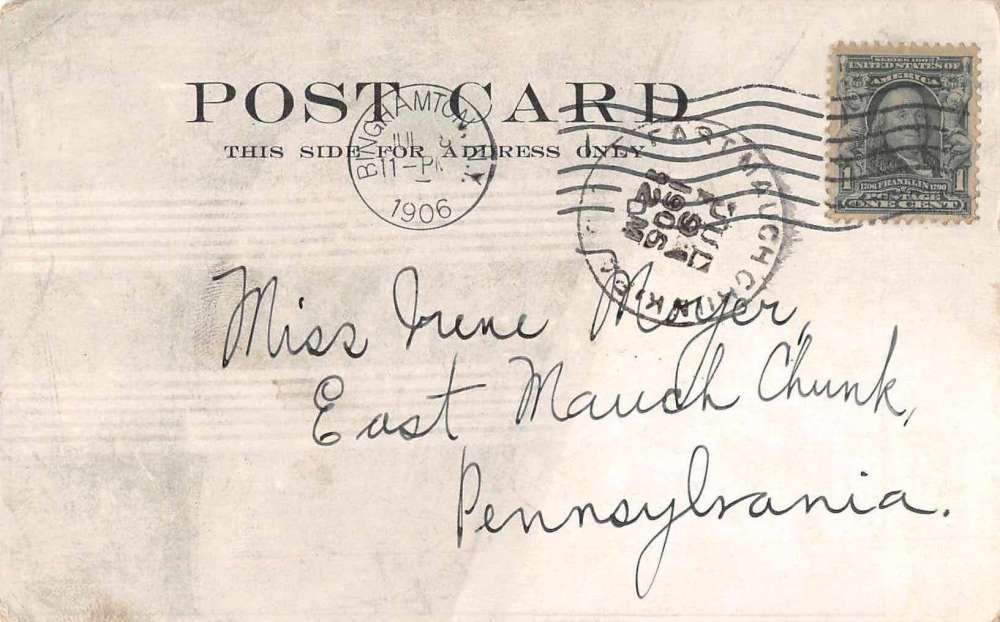 SERIES 1902
UNITED STATES OF
AMERICA
POST CARD
THIS SIDE FOR ADDRESS ONLY
BINGHAMTON, N.Y.
JUL
11-PM
1906
EAST MAUCH CHUNK,
JUL
9
6 AM
1906
1 1706 FRANKLIN 1790 1
POSTAGE
ONE CENT
Miss Irene Moyer,
East Mauch Chunk,
Pennsylvania.